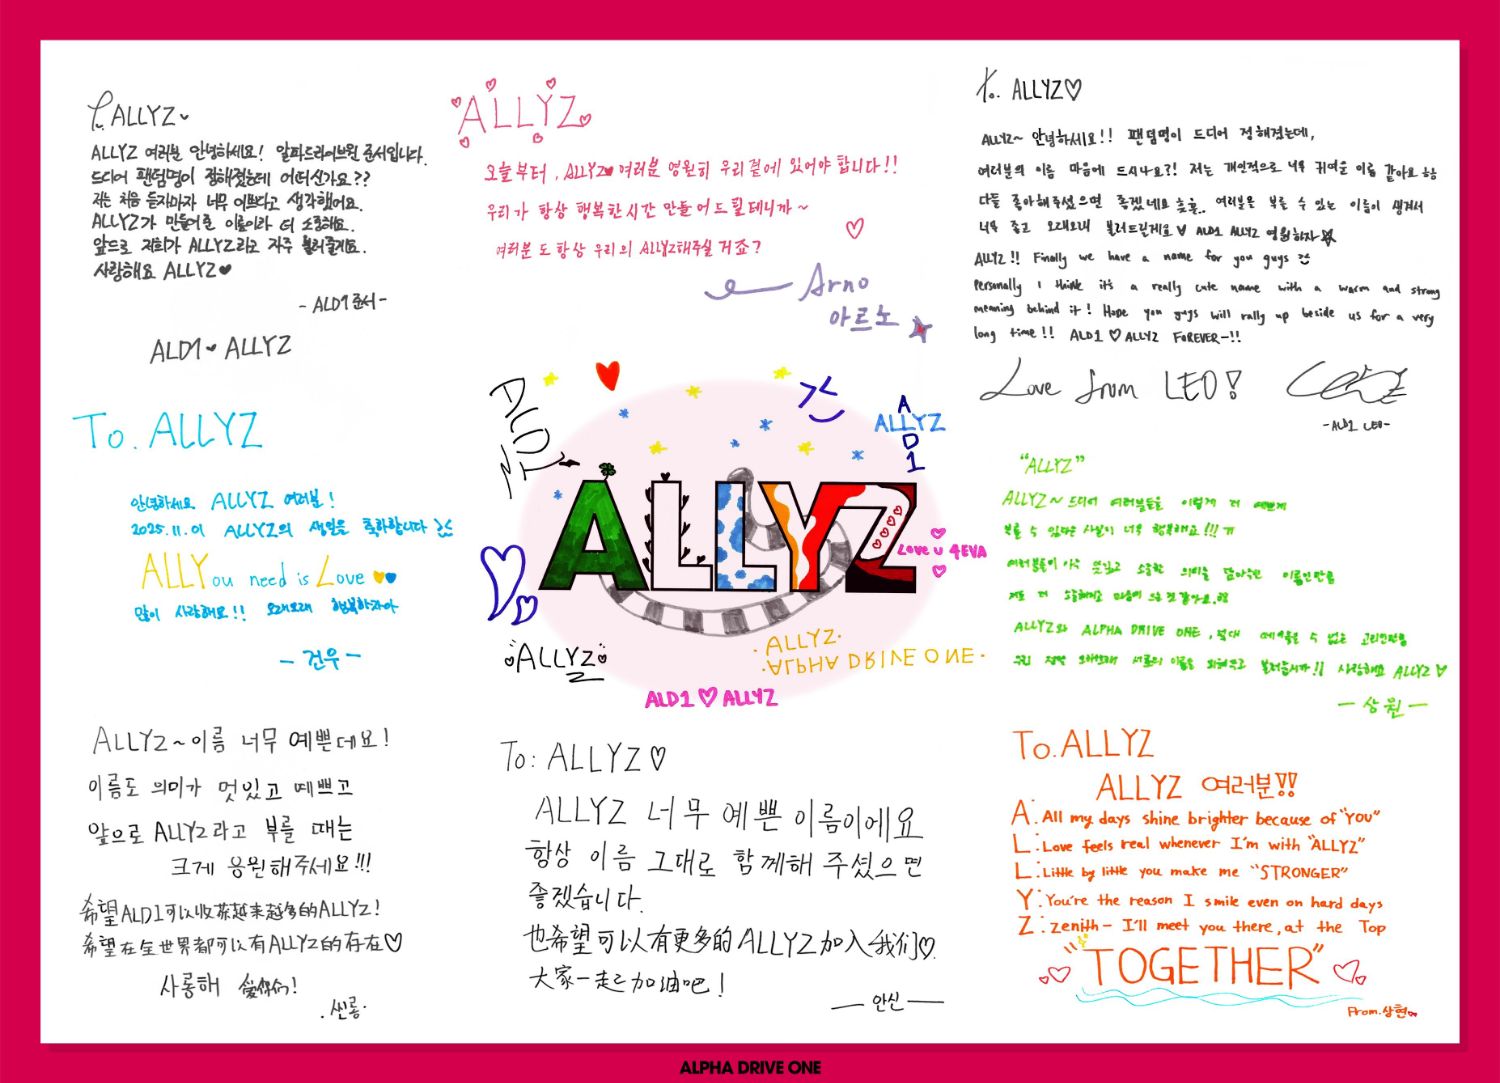 To. ALLYZ
ALLYZ 여러분 안녕하세요! 알파드라이브원 준서입니다.
드디어 팬덤명이 정해졌는데 어떠신가요??
저는 처음 듣자마자 너무 예쁘다고 생각했어요.
ALLYZ가 만들어준 이름이라 더 소중해요.
앞으로 저희가 ALLYZ라고 자주 불러줄게요.
사랑해요 ALLYZ♥
- ALD1 준서 -
ALD1 ♥ ALLYZ
ALLYZ
오늘부터, ALLYZ♥ 여러분 영원히 우리곁에 있어야 합니다!!
우리가 항상 행복한시간 만들어드릴테니까~
여러분도 항상 우리의 ALLYZ해주실 거죠?
Arno
아르노
To. ALLYZ♡
ALLYZ~ 안녕하세요!! 팬덤명이 드디어 정해졌는데,
여러분의 이름 마음에 드시나요?! 저는 개인적으로 너무 귀여운 이름 같아요 ㅎㅎ
다들 좋아해주셨으면 좋겠네요 ㅎㅎ.. 여러분을 부를 수 있는 이름이 생겨서
너무 좋고 오래오래 불러드릴게요♥ ALD1 ALLYZ 영원하자
ALLYZ!! Finally we have a name for you guys
Personally I think it's a really cute name with a warm and strong
meaning behind it! Hope you guys will rally up beside us for a very
long time!! ALD1 ♡ ALLYZ FOREVER~!!
Love from LEO!
- ALD1 LEO -
To. ALLYZ
안녕하세요 ALLYZ 여러분!
2025.11.01 ALLYZ의 생일을 축하합니다
ALLYou need is Love
많이 사랑해요!! 오래오래 행복하자아
- 건우 -
ALD1
ALLYZ
ALD1
ALLYZ
Love u 4EVA
ALLYZ
·ALLYZ·
·ALPHA DRIVE ONE·
ALD1 ♡ ALLYZ
"ALLYZ"
ALLYZ~ 드디어 여러분들을 이렇게 더 예쁘게
부를 수 있다는 사실이 너무 행복해요!!! ㅠ
여러분들이 아주 뜻있고 소중한 의미를 담아준 이름인만큼
저도 더 소중해지고 마음이 가는 것 같아요.
ALLYZ와 ALPHA DRIVE ONE, 절대 떼어놓을 수 없는 고리인만큼
우리 정말 오래오래 서로의 이름을 외쳐주고 불러줍시다!! 사랑해요 ALLYZ♡
- 상원 -
ALLYZ~이름 너무 예쁜데요!
이름도 의미가 멋있고 예쁘고
앞으로 ALLYZ라고 부를 때는
크게 응원해주세요!!!
希望ALD1可以收获越来越多的ALLYZ!
希望在全世界都可以有ALLYZ的存在♡
사랑해 爱你们!
.씬롱.
To: ALLYZ♡
ALLYZ 너무 예쁜 이름이에요
항상 이름 그대로 함께해 주셨으면
좋겠습니다.
也希望可以有更多的ALLYZ加入我们♡.
大家一起加油吧!
— 안신 —
To. ALLYZ
ALLYZ 여러분!!
A: All my days shine brighter because of "YOU"
L: Love feels real whenever I'm with "ALLYZ"
L: Little by little you make me "STRONGER"
Y: You're the reason I smile even on hard days
Z: zenith - I'll meet you there, at the Top
"TOGETHER"
From.상현
ALPHA DRIVE ONE